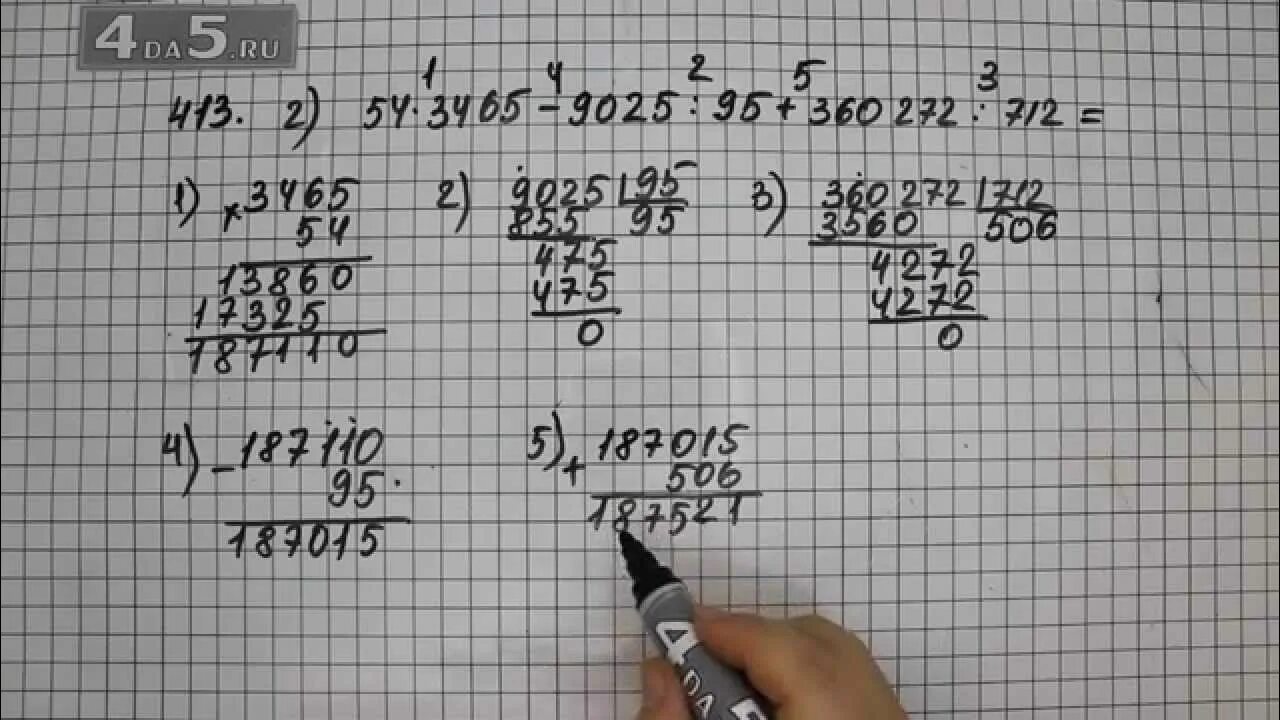 4DA5.RU
1 4 2 5 3
413. 2) 54·3465-9025:95+360 272:712=
1) ×3465
54
13860
17325
187110
2) 9025 95
855 95
475
475
0
3) 360272 712
3560 506
4272
4272
0
4) -187110
95
187015
5) +187015
506
187521
4
DA